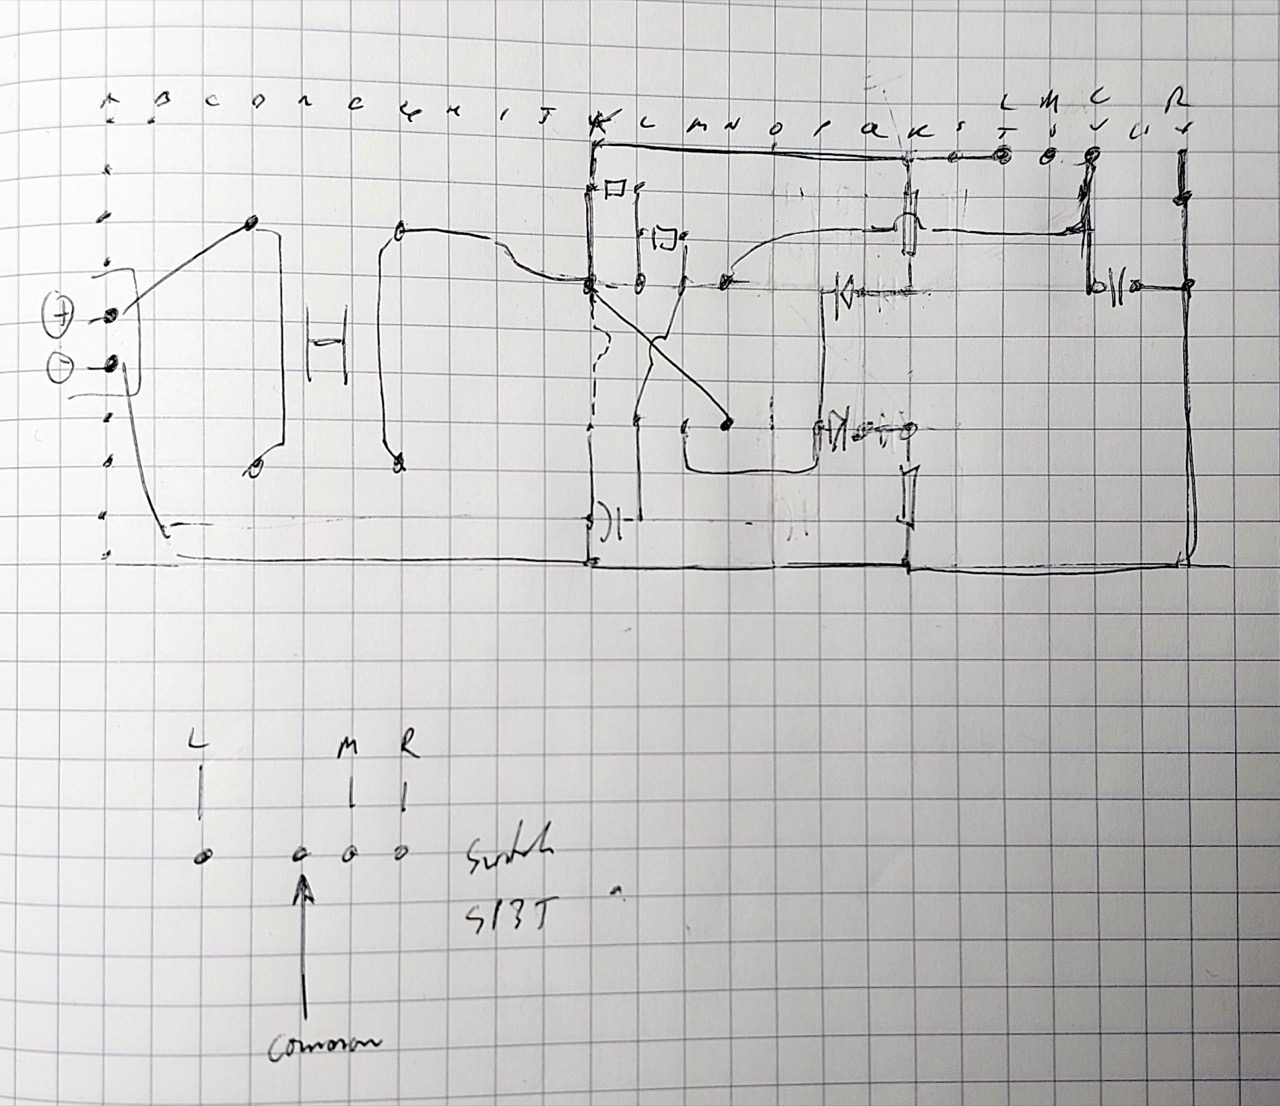 L M C R
A B C D E F G H I J K L M N O P Q R S T U V
+
-
H
L M R
Switch
SP3T
Common